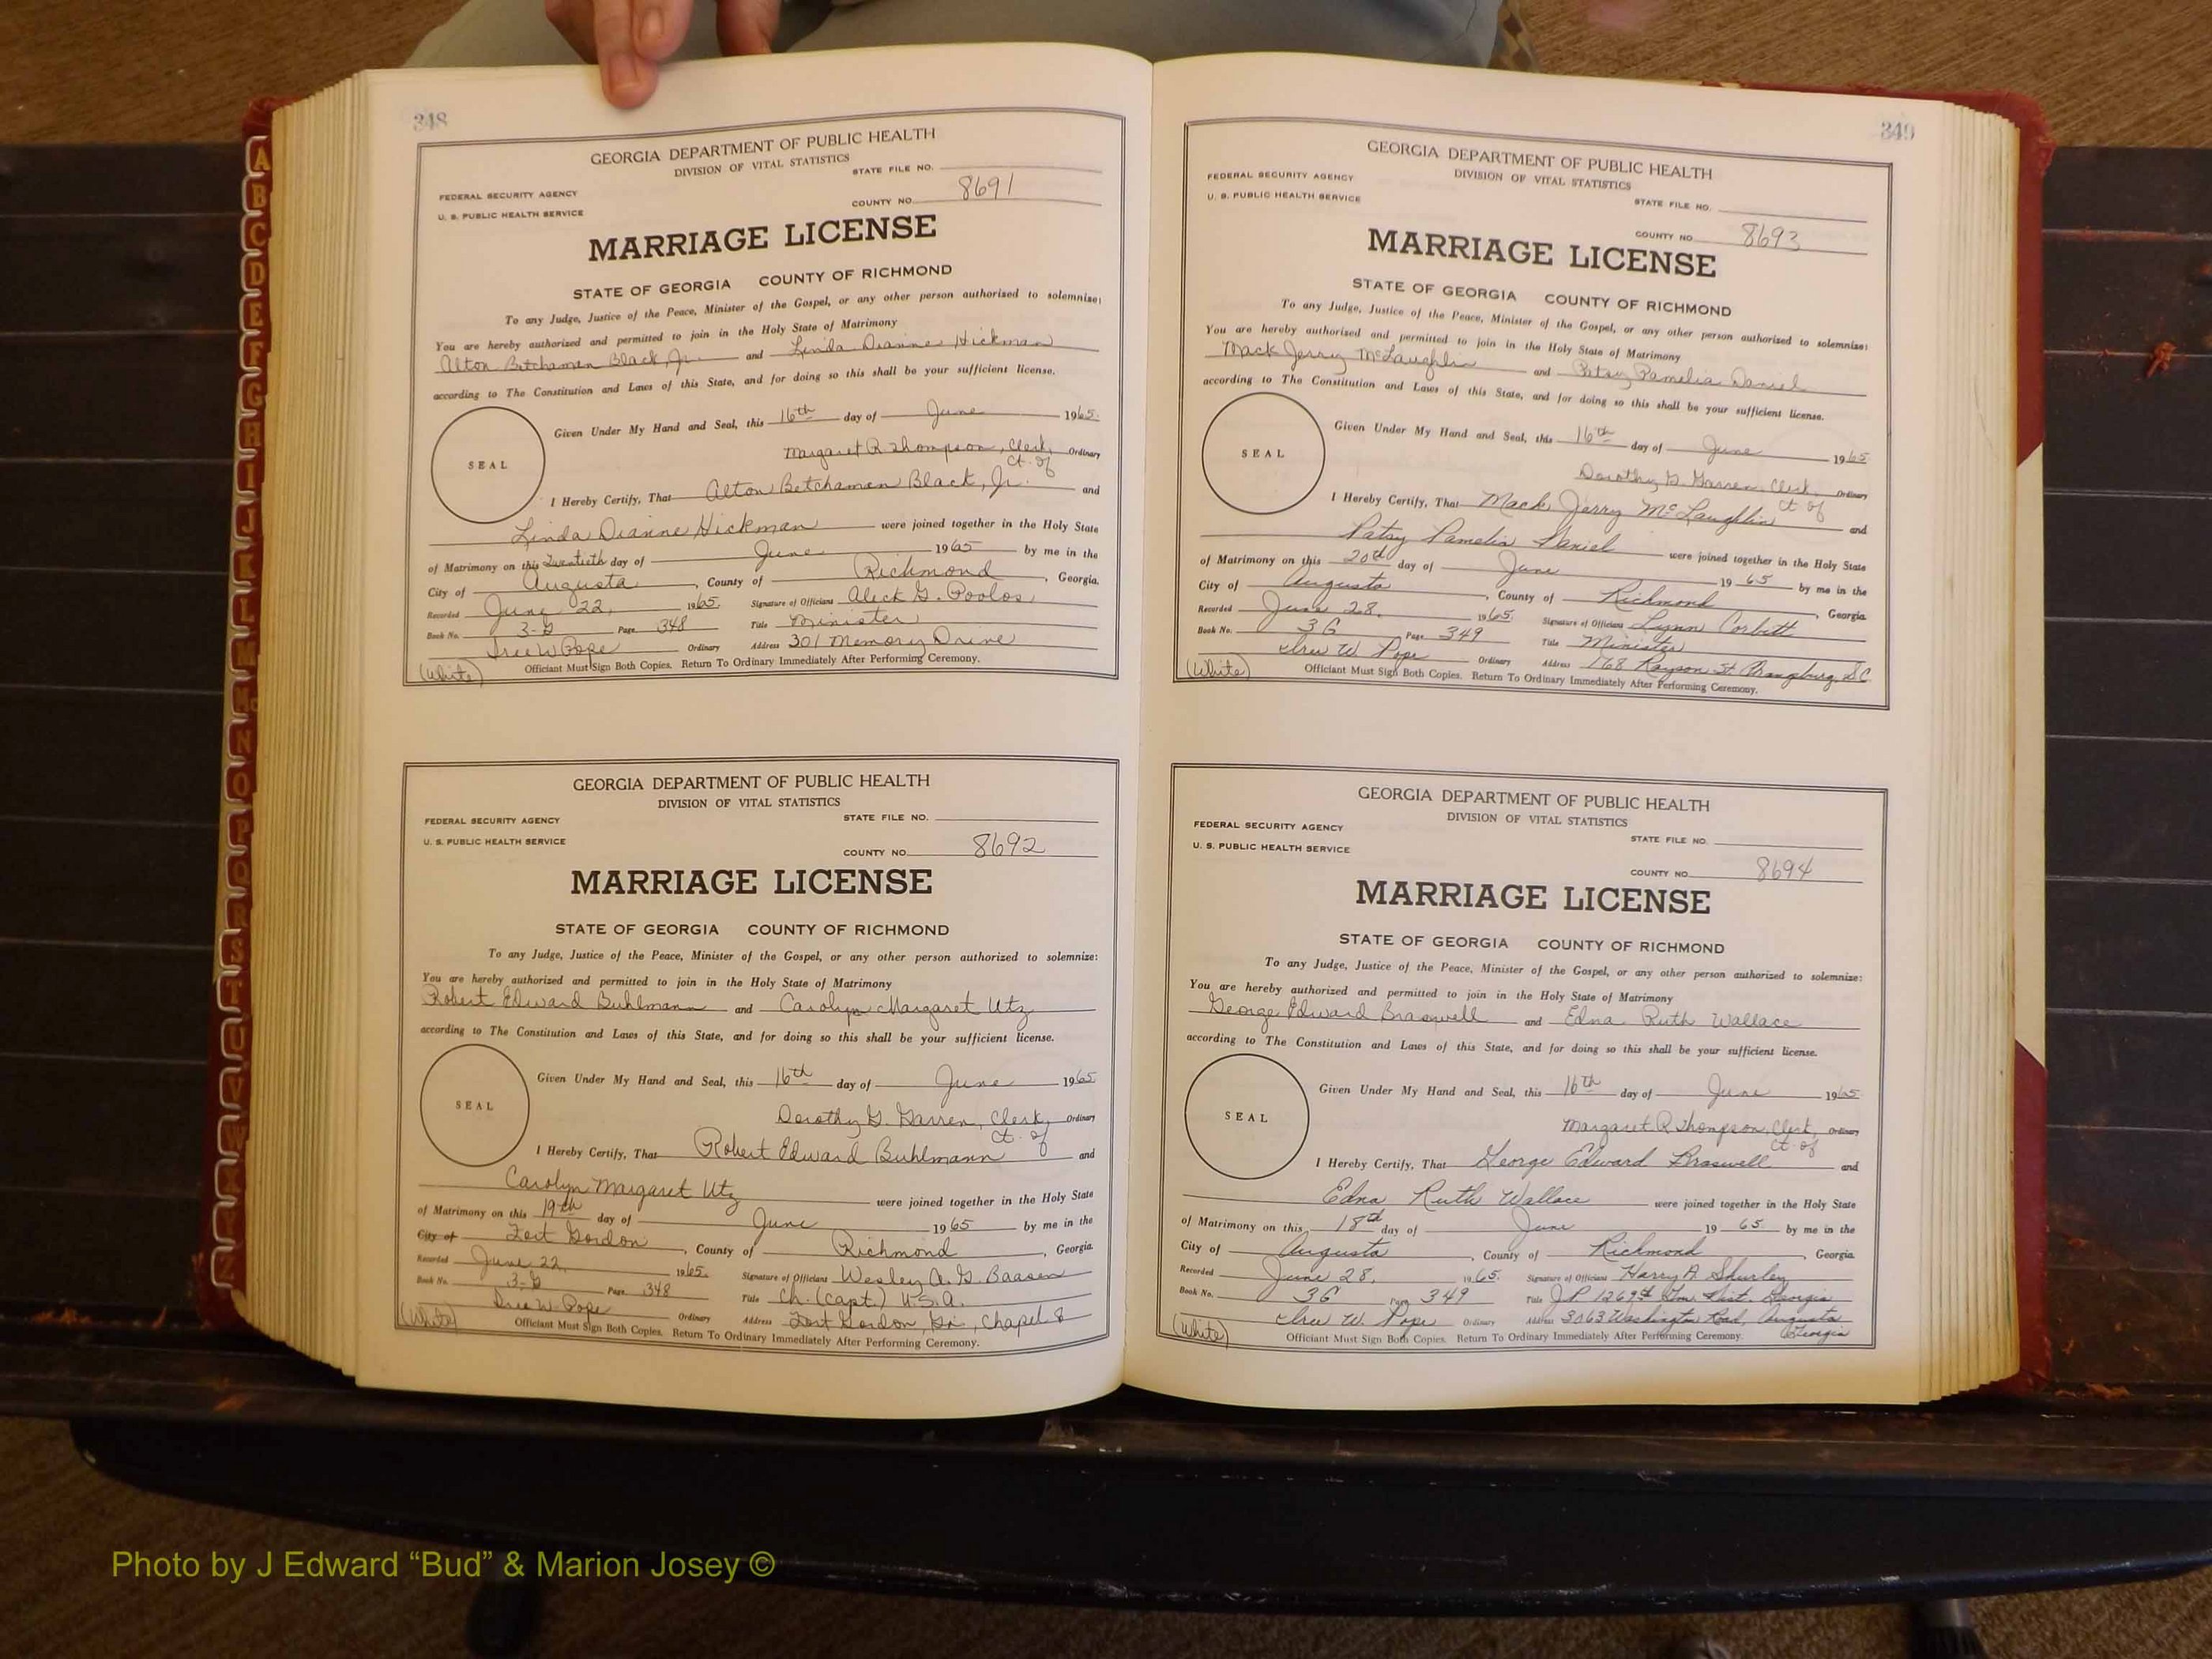 348
GEORGIA DEPARTMENT OF PUBLIC HEALTH
DIVISION OF VITAL STATISTICS
STATE FILE NO.
FEDERAL SECURITY AGENCY
U. S. PUBLIC HEALTH SERVICE
COUNTY NO. 8691
MARRIAGE LICENSE
STATE OF GEORGIA COUNTY OF RICHMOND
To any Judge, Justice of the Peace, Minister of the Gospel, or any other person authorized to solemnize:
You are hereby authorized and permitted to join in the Holy State of Matrimony
Alton Betchaman Black, Jr. and Linda Dianne Hickman
according to The Constitution and Laws of this State, and for doing so this shall be your sufficient license.
Given Under My Hand and Seal, this 16th day of June 1965.
SEAL
Margaret R. Thompson, Clerk, Ordinary
Ct. of
I Hereby Certify, That Alton Betchaman Black, Jr. and
Linda Dianne Hickman were joined together in the Holy State
of Matrimony on this Twentieth day of June 1965 by me in the
City of Augusta, County of Richmond, Georgia.
Recorded June 22, 1965. Signature of Officiant Aleck G. Poolos
Book No. 3-G Page 348 Title Minister
Iree W. Pope Ordinary Address 301 Memory Drive
(White) Officiant Must Sign Both Copies. Return To Ordinary Immediately After Performing Ceremony.
GEORGIA DEPARTMENT OF PUBLIC HEALTH
DIVISION OF VITAL STATISTICS
STATE FILE NO.
FEDERAL SECURITY AGENCY
U. S. PUBLIC HEALTH SERVICE
COUNTY NO. 8692
MARRIAGE LICENSE
STATE OF GEORGIA COUNTY OF RICHMOND
To any Judge, Justice of the Peace, Minister of the Gospel, or any other person authorized to solemnize:
You are hereby authorized and permitted to join in the Holy State of Matrimony
Robert Edward Buhlmann and Carolyn Margaret Utz
according to The Constitution and Laws of this State, and for doing so this shall be your sufficient license.
Given Under My Hand and Seal, this 16th day of June 1965
SEAL
Dorothy G. Garren, Clerk, Ordinary
Ct. of
I Hereby Certify, That Robert Edward Buhlmann and
Carolyn Margaret Utz were joined together in the Holy State
of Matrimony on this 19th day of June 1965 by me in the
City of Fort Gordon, County of Richmond, Georgia.
Recorded June 22, 1965. Signature of Officiant Wesley A. G. Baasen
Book No. 3-G Page 348 Title Ch. (Capt.) U.S.A.
Iree W. Pope Ordinary Address Fort Gordon, Ga., Chapel 8
(White) Officiant Must Sign Both Copies. Return To Ordinary Immediately After Performing Ceremony.
349
GEORGIA DEPARTMENT OF PUBLIC HEALTH
DIVISION OF VITAL STATISTICS
FEDERAL SECURITY AGENCY
U. S. PUBLIC HEALTH SERVICE
STATE FILE NO.
COUNTY NO. 8693
MARRIAGE LICENSE
STATE OF GEORGIA COUNTY OF RICHMOND
To any Judge, Justice of the Peace, Minister of the Gospel, or any other person authorized to solemnize:
You are hereby authorized and permitted to join in the Holy State of Matrimony
Mack Jerry McLaughlin and Patsy Pamelia Daniel
according to The Constitution and Laws of this State, and for doing so this shall be your sufficient license.
Given Under My Hand and Seal, this 16th day of June 1965
SEAL
Dorothy G. Garren, Clerk, Ordinary
Ct of
I Hereby Certify, That Mack Jerry McLaughlin and
Patsy Pamelia Daniel were joined together in the Holy State
of Matrimony on this 20th day of June 1965 by me in the
City of Augusta, County of Richmond, Georgia.
Recorded June 28, 1965. Signature of Officiant Lynn Corbitt
Book No. 3G Page 349 Title Minister
Iree W. Pope Ordinary Address 168 St. Orangeburg, S.C.
(White) Officiant Must Sign Both Copies. Return To Ordinary Immediately After Performing Ceremony.
GEORGIA DEPARTMENT OF PUBLIC HEALTH
DIVISION OF VITAL STATISTICS
FEDERAL SECURITY AGENCY
U. S. PUBLIC HEALTH SERVICE
STATE FILE NO.
COUNTY NO. 8694
MARRIAGE LICENSE
STATE OF GEORGIA COUNTY OF RICHMOND
To any Judge, Justice of the Peace, Minister of the Gospel, or any other person authorized to solemnize:
You are hereby authorized and permitted to join in the Holy State of Matrimony
George Edward Braswell and Edna Ruth Wallace
according to The Constitution and Laws of this State, and for doing so this shall be your sufficient license.
Given Under My Hand and Seal, this 16th day of June 1965
SEAL
Margaret R. Thompson, Clerk, Ordinary
Ct of
I Hereby Certify, That George Edward Braswell and
Edna Ruth Wallace were joined together in the Holy State
of Matrimony on this 18th day of June 1965 by me in the
City of Augusta, County of Richmond, Georgia
Recorded June 28, 1965. Signature of Officiant Harry A. Shurley
Book No. 3G Page 349 Title J.P. 1269th G.M. Dist. Georgia
Iree W. Pope Ordinary Address 3063 Washington Road, Augusta
Georgia
(White) Officiant Must Sign Both Copies. Return To Ordinary Immediately After Performing Ceremony.
A
B
C
D
E
F
G
H
I
J
K
L
M
Mc
N
O
P
Q
R
S
T
U
V
W
X
Y
Z
Photo by J Edward “Bud” & Marion Josey ©